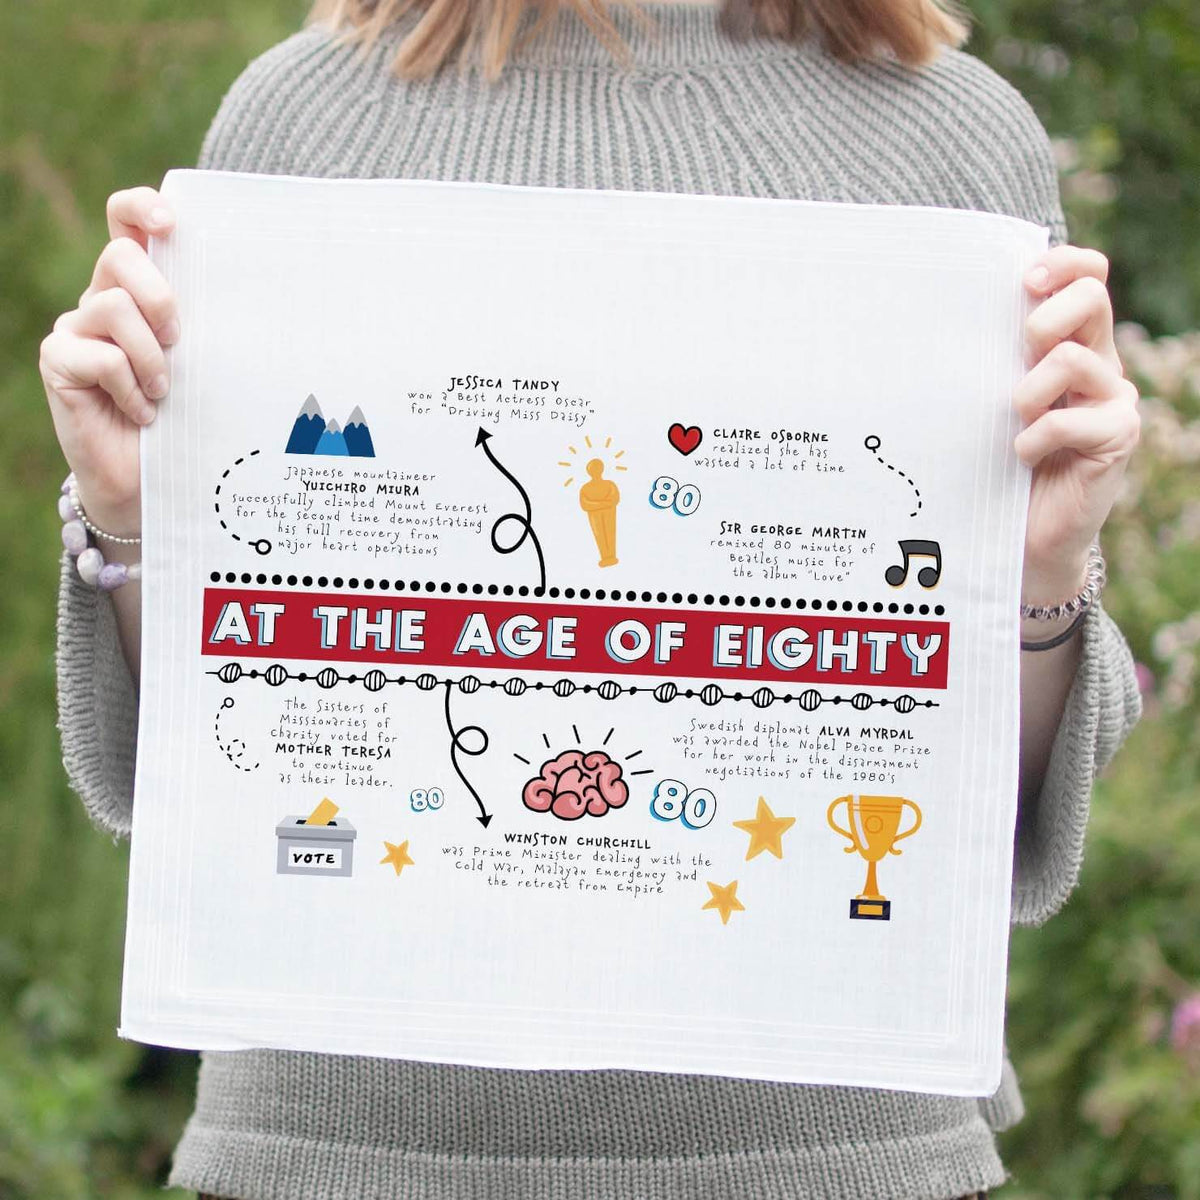 JESSICA TANDY
won a Best Actress Oscar
for "Driving Miss Daisy"
Japanese mountaineer
YUICHIRO MIURA
successfully climbed Mount Everest
for the second time demonstrating
his full recovery from
major heart operations
CLAIRE OSBORNE
realized she has
wasted a lot of time
80
SIR GEORGE MARTIN
remixed 80 minutes of
Beatles music for
the album "Love"
AT THE AGE OF EIGHTY
The Sisters of
Missionaries of
Charity voted for
MOTHER TERESA
to continue
as their leader.
VOTE
80
WINSTON CHURCHILL
was Prime Minister dealing with the
Cold War, Malayan Emergency and
the retreat from Empire
80
Swedish diplomat ALVA MYRDAL
was awarded the Nobel Peace Prize
for her work in the disarmament
negotiations of the 1980's